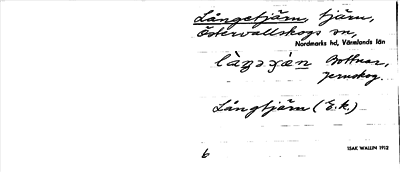 Långetjärn, tjärn,
Östervallskogs sn,
Nordmarks hd, Värmlands län
Bottnar,
Jernskog.
Långtjärn (E.k.)
6 ISAK WALLIN 1912